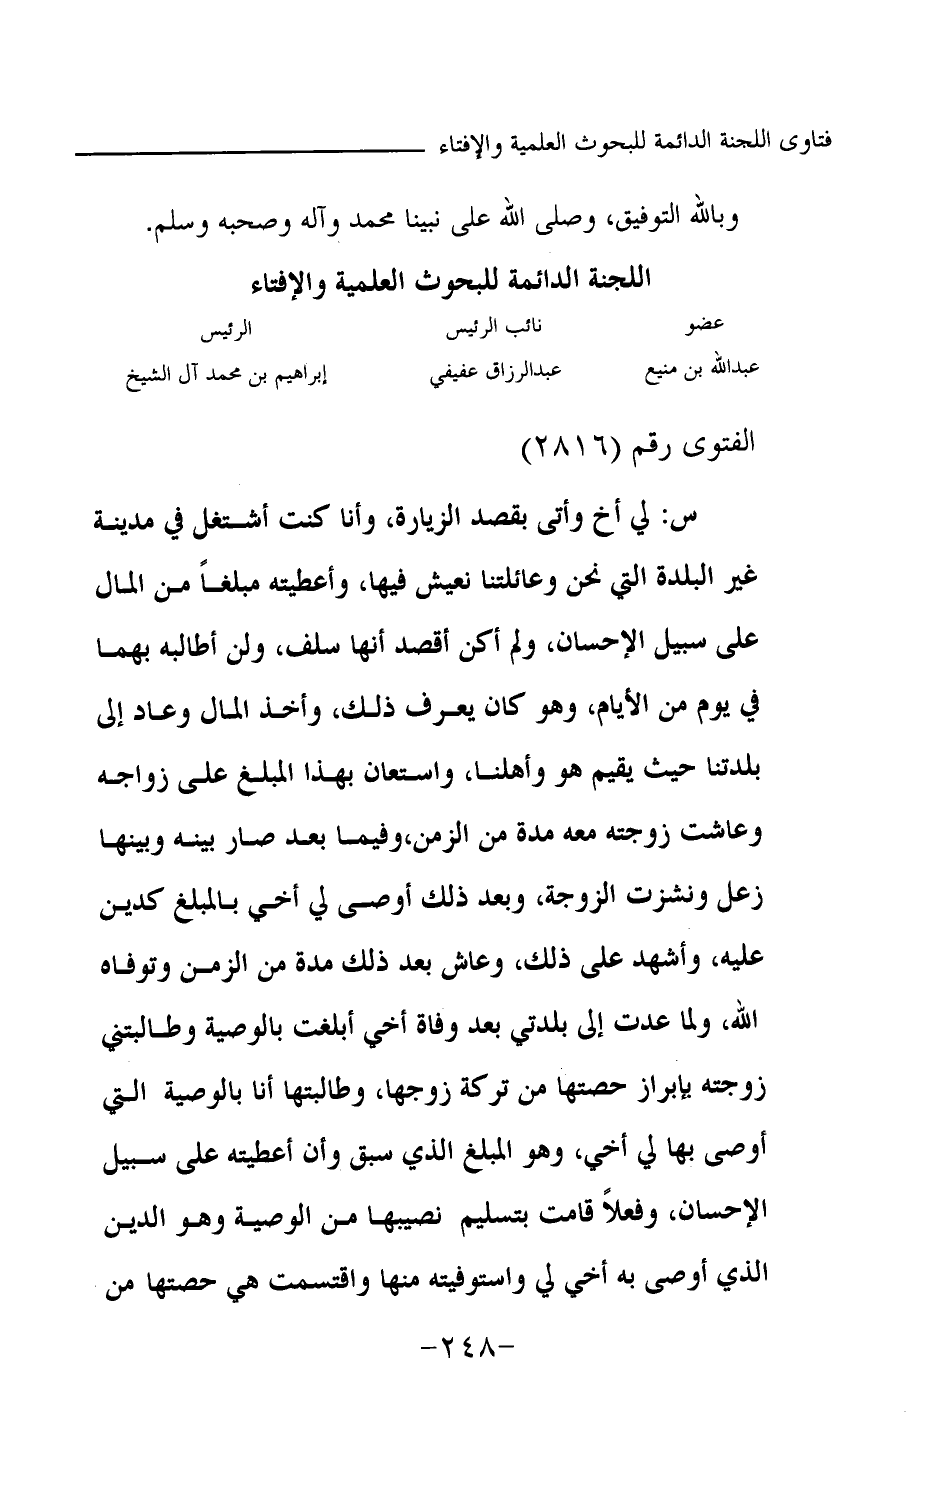 فتاوى اللجنة الدائمة للبحوث العلمية والإفتاء
وبالله التوفيق، وصلى الله على نبينا محمد وآله وصحبه وسلم.
اللجنة الدائمة للبحوث العلمية والإفتاء
عضو نائب الرئيس الرئيس
عبدالله بن منيع عبدالرزاق عفيفي إبراهيم بن محمد آل الشيخ
الفتوى رقم (٢٨١٦)
س: لي أخ وأتى بقصد الزيارة، وأنا كنت أشتغل في مدينة
غير البلدة التي نحن وعائلتنا نعيش فيها، وأعطيته مبلغاً من المال
على سبيل الإحسان، ولم أكن أقصد أنها سلف، ولن أطالبه بهما
في يوم من الأيام، وهو كان يعرف ذلك، وأخذ المال وعاد إلى
بلدتنا حيث يقيم هو وأهلنا، واستعان بهذا المبلغ على زواجه
وعاشت زوجته معه مدة من الزمن،وفيما بعد صار بينه وبينها
زعل ونشزت الزوجة، وبعد ذلك أوصى لي أخي بالمبلغ كدين
عليه، وأشهد على ذلك، وعاش بعد ذلك مدة من الزمن وتوفاه
الله، ولما عدت إلى بلدتي بعد وفاة أخي أبلغت بالوصية وطالبتني
زوجته بإبراز حصتها من تركة زوجها، وطالبتها أنا بالوصية التي
أوصى بها لي أخي، وهو المبلغ الذي سبق وأن أعطيته على سبيل
الإحسان، وفعلاً قامت بتسليم نصيبها من الوصية وهو الدين
الذي أوصى به أخي لي واستوفيته منها واقتسمت هي حصتها من
-٢٤٨-